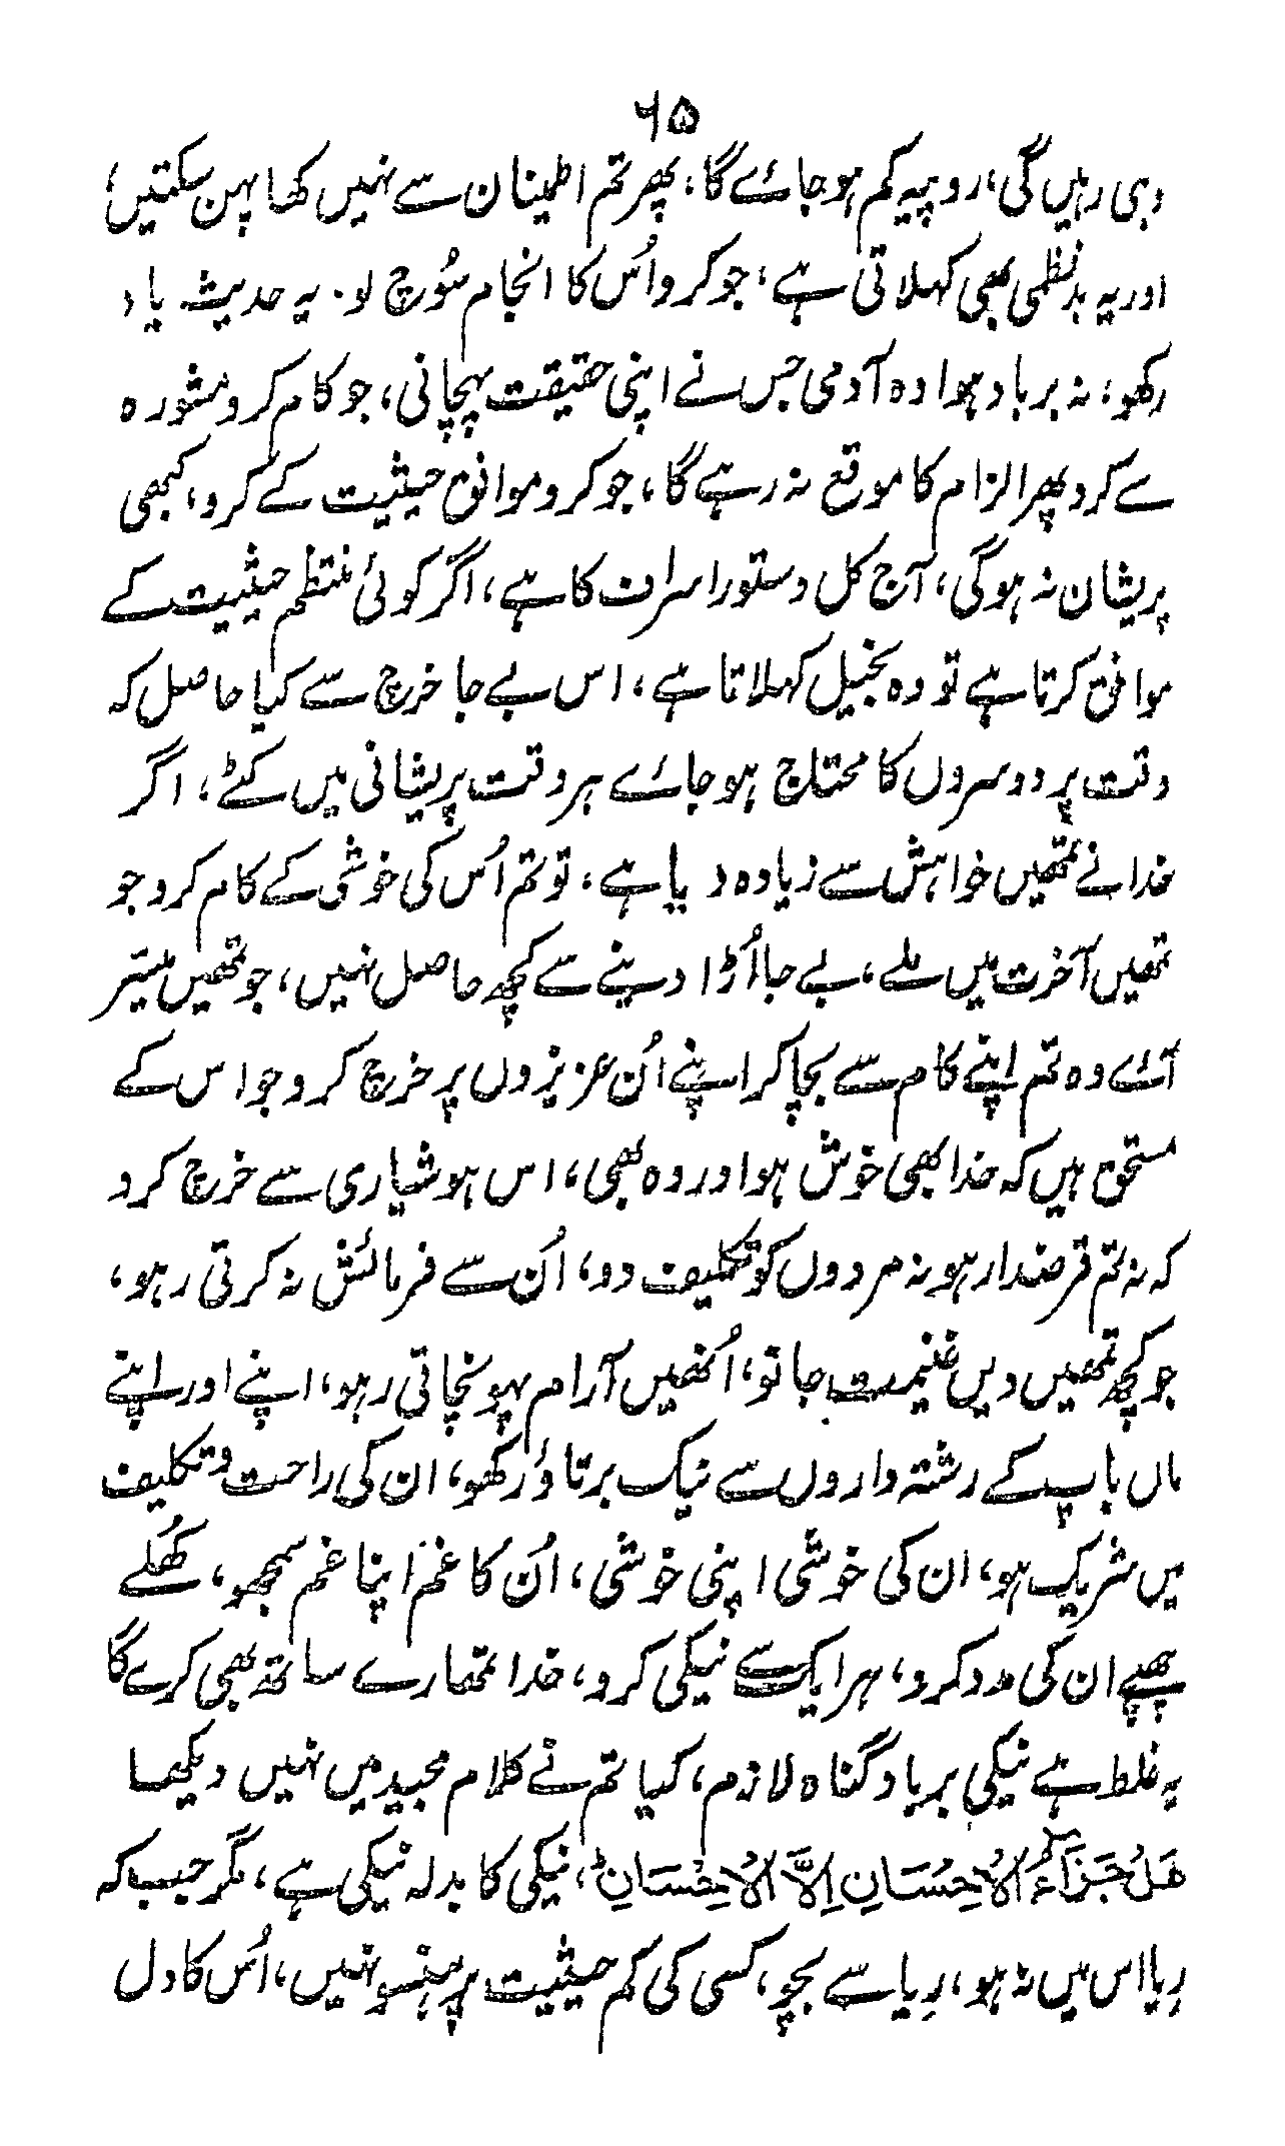 ۶۵
دبی رہیں گی، روپیہ کم ہو جائے گا، پھر تم اطمینان سے نہیں کھا پہن سکتیں،
اور یہ بدنظمی بھی کہلاتی ہے، جو کرو اُس کا انجام سُوچ لو۔ یہ حدیث یاد
رکھو، نہ برباد ہوا وہ آدمی جس نے اپنی حقیقت پہچانی، جو کام کرو مشورہ
سے کرو پھر الزام کا موقع نہ رہے گا، جو کرو موافق حیثیت کے کرو، کبھی
پریشان نہ ہوگی، آج کل دستور اسراف کا ہے، اگر کوئی منتظم حیثیت کے
موافق کرتا ہے تو وہ بخیل کہلاتا ہے، اس بے جا خرچ سے کیا حاصل کہ
وقت پر دوسروں کا محتاج ہو جائے ہر وقت پریشانی میں کٹے، اگر
خدا نے تمھیں خواہش سے زیادہ دیا ہے، تو تم اُس کی خوشی کے کام کرو جو
تمھیں آخرت میں ملے، بے جا اُڑا دینے سے کچھ حاصل نہیں، جو تمھیں میسّر
آئے وہ تم اپنے کام سے بچا کر اپنے اُن عزیزوں پر خرچ کرو جو اس کے
مستحق ہیں کہ خدا بھی خوش ہو اور وہ بھی، اس ہوشیاری سے خرچ کرو
کہ نہ تم قرضدار ہو نہ مردوں کو تکلیف دو، اُن سے فرمائش نہ کرتی رہو،
جو کچھ تمھیں دیں غنیمت جانو، اُنھیں آرام پہونچاتی رہو، اپنے اور اپنے
ماں باپ کے رشتہ داروں سے نیک برتاؤ رکھو، ان کی راحت و تکلیف
میں شریک ہو، ان کی خوشی اپنی خوشی، اُن کا غم اپنا غم سمجھو، کھُلے
چھپے ان کی مدد کرو، ہر ایک سے نیکی کرو، خدا تمھارے ساتھ بھی کرے گا
یہ غلط ہے نیکی برباد گناہ لازم، کیا تم نے کلام مجید میں نہیں دیکھا
هَلْ جَزَآءُ الْاِحْسَانِ اِلَّا الْاِحْسَانِ ؕ، نیکی کا بدلہ نیکی ہے، مگر جب کہ
رِیا اس میں نہ ہو، رِیا سے بچو، کسی کی کم حیثیت پر ہنسو نہیں، اُس کا دل